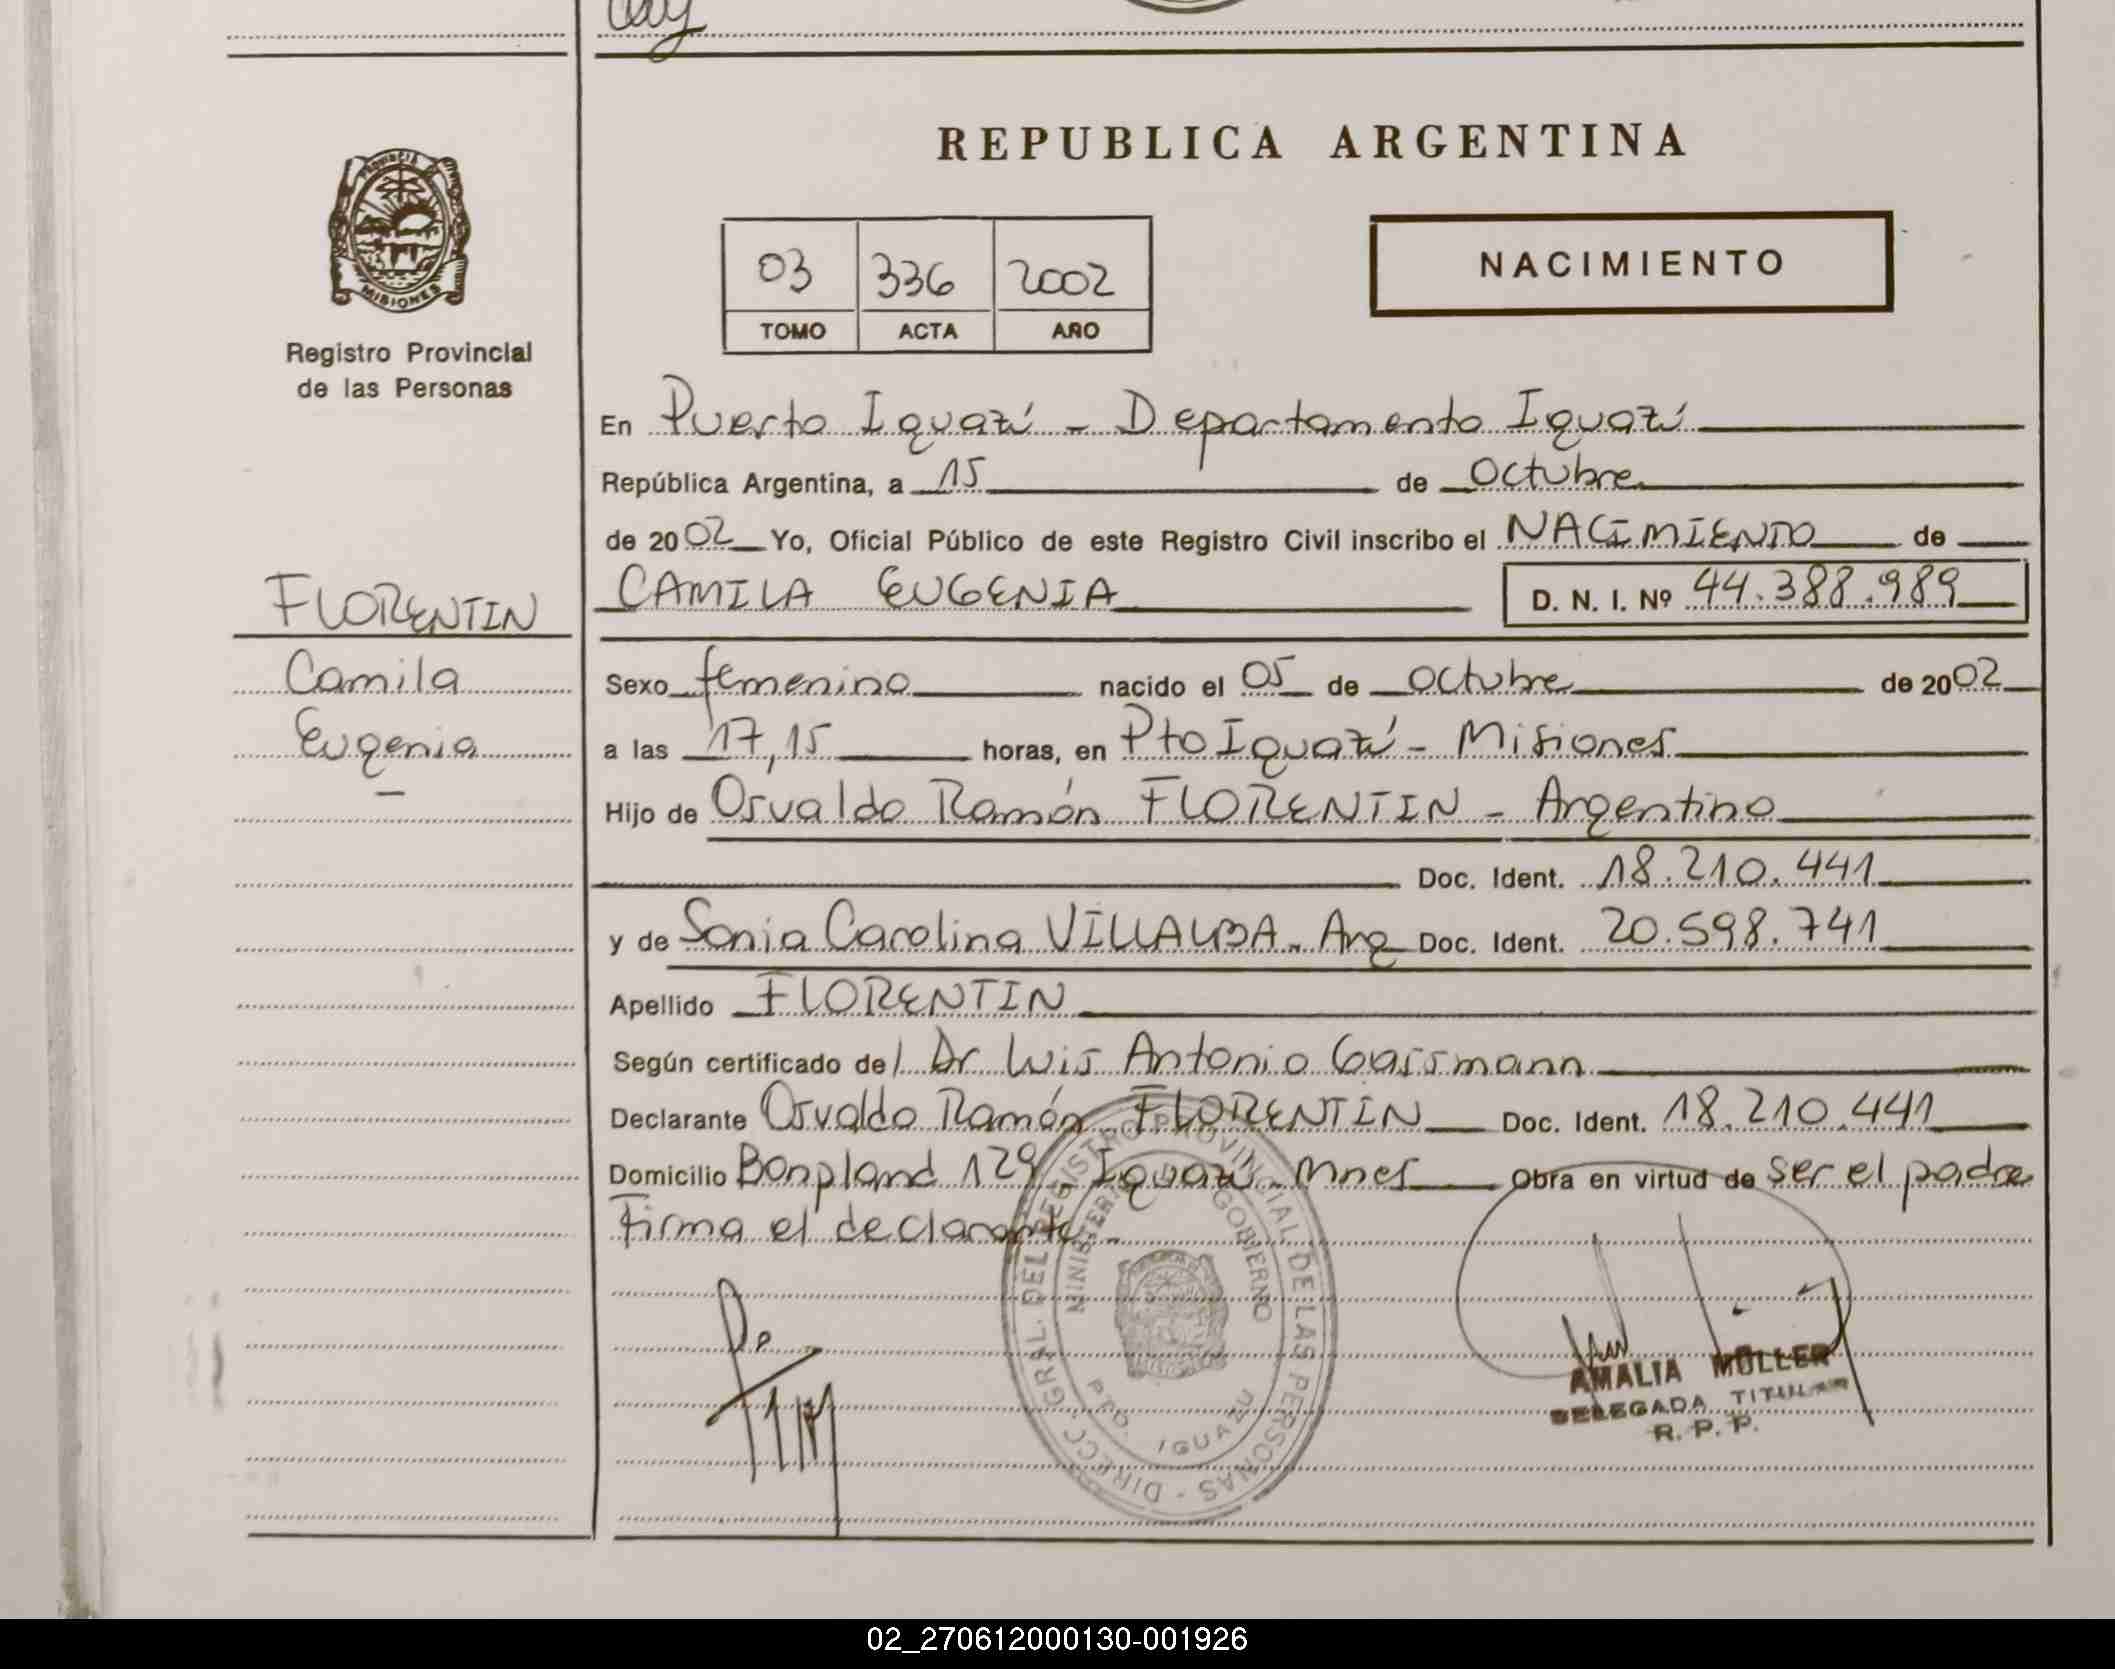 REPUBLICA ARGENTINA
PROVINCIA
MISIONES
Registro Provincial
de las Personas
03 336 2002
TOMO ACTA AÑO
NACIMIENTO
En Puerto Iguazú - Departamento Iguazú
República Argentina, a 15 de Octubre
de 2002 Yo, Oficial Público de este Registro Civil inscribo el NACIMIENTO de
CAMILA EUGENIA D. N. I. Nº 44.388.989
FLORENTIN
Camila
Eugenia
Sexo femenino nacido el 05 de octubre de 2002
a las 17,15 horas, en Pto Iguazú - Misiones
Hijo de Osvaldo Ramón FLORENTIN - Argentino
Doc. Ident. 18.210.441
y de Sonia Carolina VILLALBA - Arg Doc. Ident. 20.598.741
Apellido FLORENTIN
Según certificado del Dr Luis Antonio Gassmann
Declarante Osvaldo Ramón FLORENTIN Doc. Ident. 18.210.441
Domicilio Bonpland 129 Iguazú - Mnes Obra en virtud de ser el padre
Firma el declarante -
DIRECC. GRAL. DEL REGISTRO PROVINCIAL DE LAS PERSONAS -
GOBIERNO
PTO. IGUAZU
AMALIA MÜLLER
DELEGADA TITULAR
R. P. P.
02_270612000130-001926